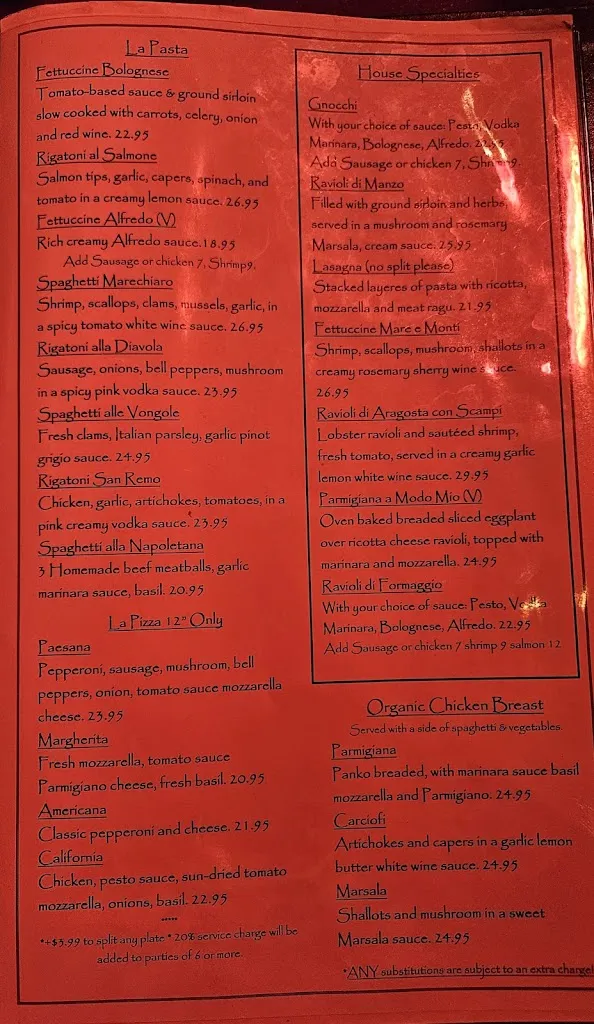 La Pasta
Fettuccine Bolognese
Tomato-based sauce & ground sirloin
slow cooked with carrots, celery, onion
and red wine. 22.95
Rigatoni al Salmone
Salmon tips, garlic, capers, spinach, and
tomato in a creamy lemon sauce. 26.95
Fettuccine Alfredo (V)
Rich creamy Alfredo sauce. 18.95
Add Sausage or chicken 7, Shrimp 9.
Spaghetti Marechiaro
Shrimp, scallops, clams, mussels, garlic, in
a spicy tomato white wine sauce. 26.95
Rigatoni alla Diavola
Sausage, onions, bell peppers, mushroom
in a spicy pink vodka sauce. 23.95
Spaghetti alle Vongole
Fresh clams, Italian parsley, garlic pinot
grigio sauce. 24.95
Rigatoni San Remo
Chicken, garlic, artichokes, tomatoes, in a
pink creamy vodka sauce. 23.95
Spaghetti alla Napoletana
3 Homemade beef meatballs, garlic
marinara sauce, basil. 20.95
La Pizza 12" Only
Paesana
Pepperoni, sausage, mushroom, bell
peppers, onion, tomato sauce mozzarella
cheese. 23.95
Margherita
Fresh mozzarella, tomato sauce
Parmigiano cheese, fresh basil. 20.95
Americana
Classic pepperoni and cheese. 21.95
California
Chicken, pesto sauce, sun-dried tomato
mozzarella, onions, basil. 22.95
*****
*+$3.99 to split any plate * 20% service charge will be
added to parties of 6 or more.
House Specialties
Gnocchi
With your choice of sauce: Pesto, Vodka
Marinara, Bolognese, Alfredo.
Add Sausage or chicken 7, Shrimp 9.
Ravioli di Manzo
Filled with ground sirloin and herbs,
served in a mushroom and rosemary
Marsala, cream sauce. 25.95
Lasagna (no split please)
Stacked layeres of pasta with ricotta,
mozzarella and meat ragu. 21.95
Fettuccine Mare e Monti
Shrimp, scallops, mushroom, shallots in a
creamy rosemary sherry wine sauce.
26.95
Ravioli di Aragosta con Scampi
Lobster ravioli and sautéed shrimp,
fresh tomato, served in a creamy garlic
lemon white wine sauce. 29.95
Parmigiana a Modo Mio (V)
Oven baked breaded sliced eggplant
over ricotta cheese ravioli, topped with
marinara and mozzarella. 24.95
Ravioli di Formaggio
With your choice of sauce: Pesto, Vodka
Marinara, Bolognese, Alfredo. 22.95
Add Sausage or chicken 7 shrimp 9 salmon 12
Organic Chicken Breast
Served with a side of spaghetti & vegetables.
Parmigiana
Panko breaded, with marinara sauce basil
mozzarella and Parmigiano. 24.95
Carciofi
Artichokes and capers in a garlic lemon
butter white wine sauce. 24.95
Marsala
Shallots and mushroom in a sweet
Marsala sauce. 24.95
*ANY substitutions are subject to an extra charge!